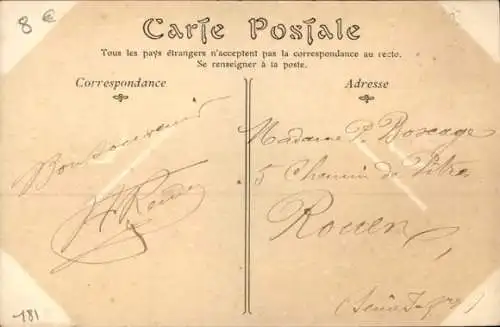 8 €
Carte Postale
Tous les pays étrangers n'acceptent pas la correspondance au recto.
Se renseigner à la poste.
Correspondance
Adresse
Bon souvenir
Madame P. Boscage
5 Chemin de Vitres
Rouen
(Seine Infre)
181